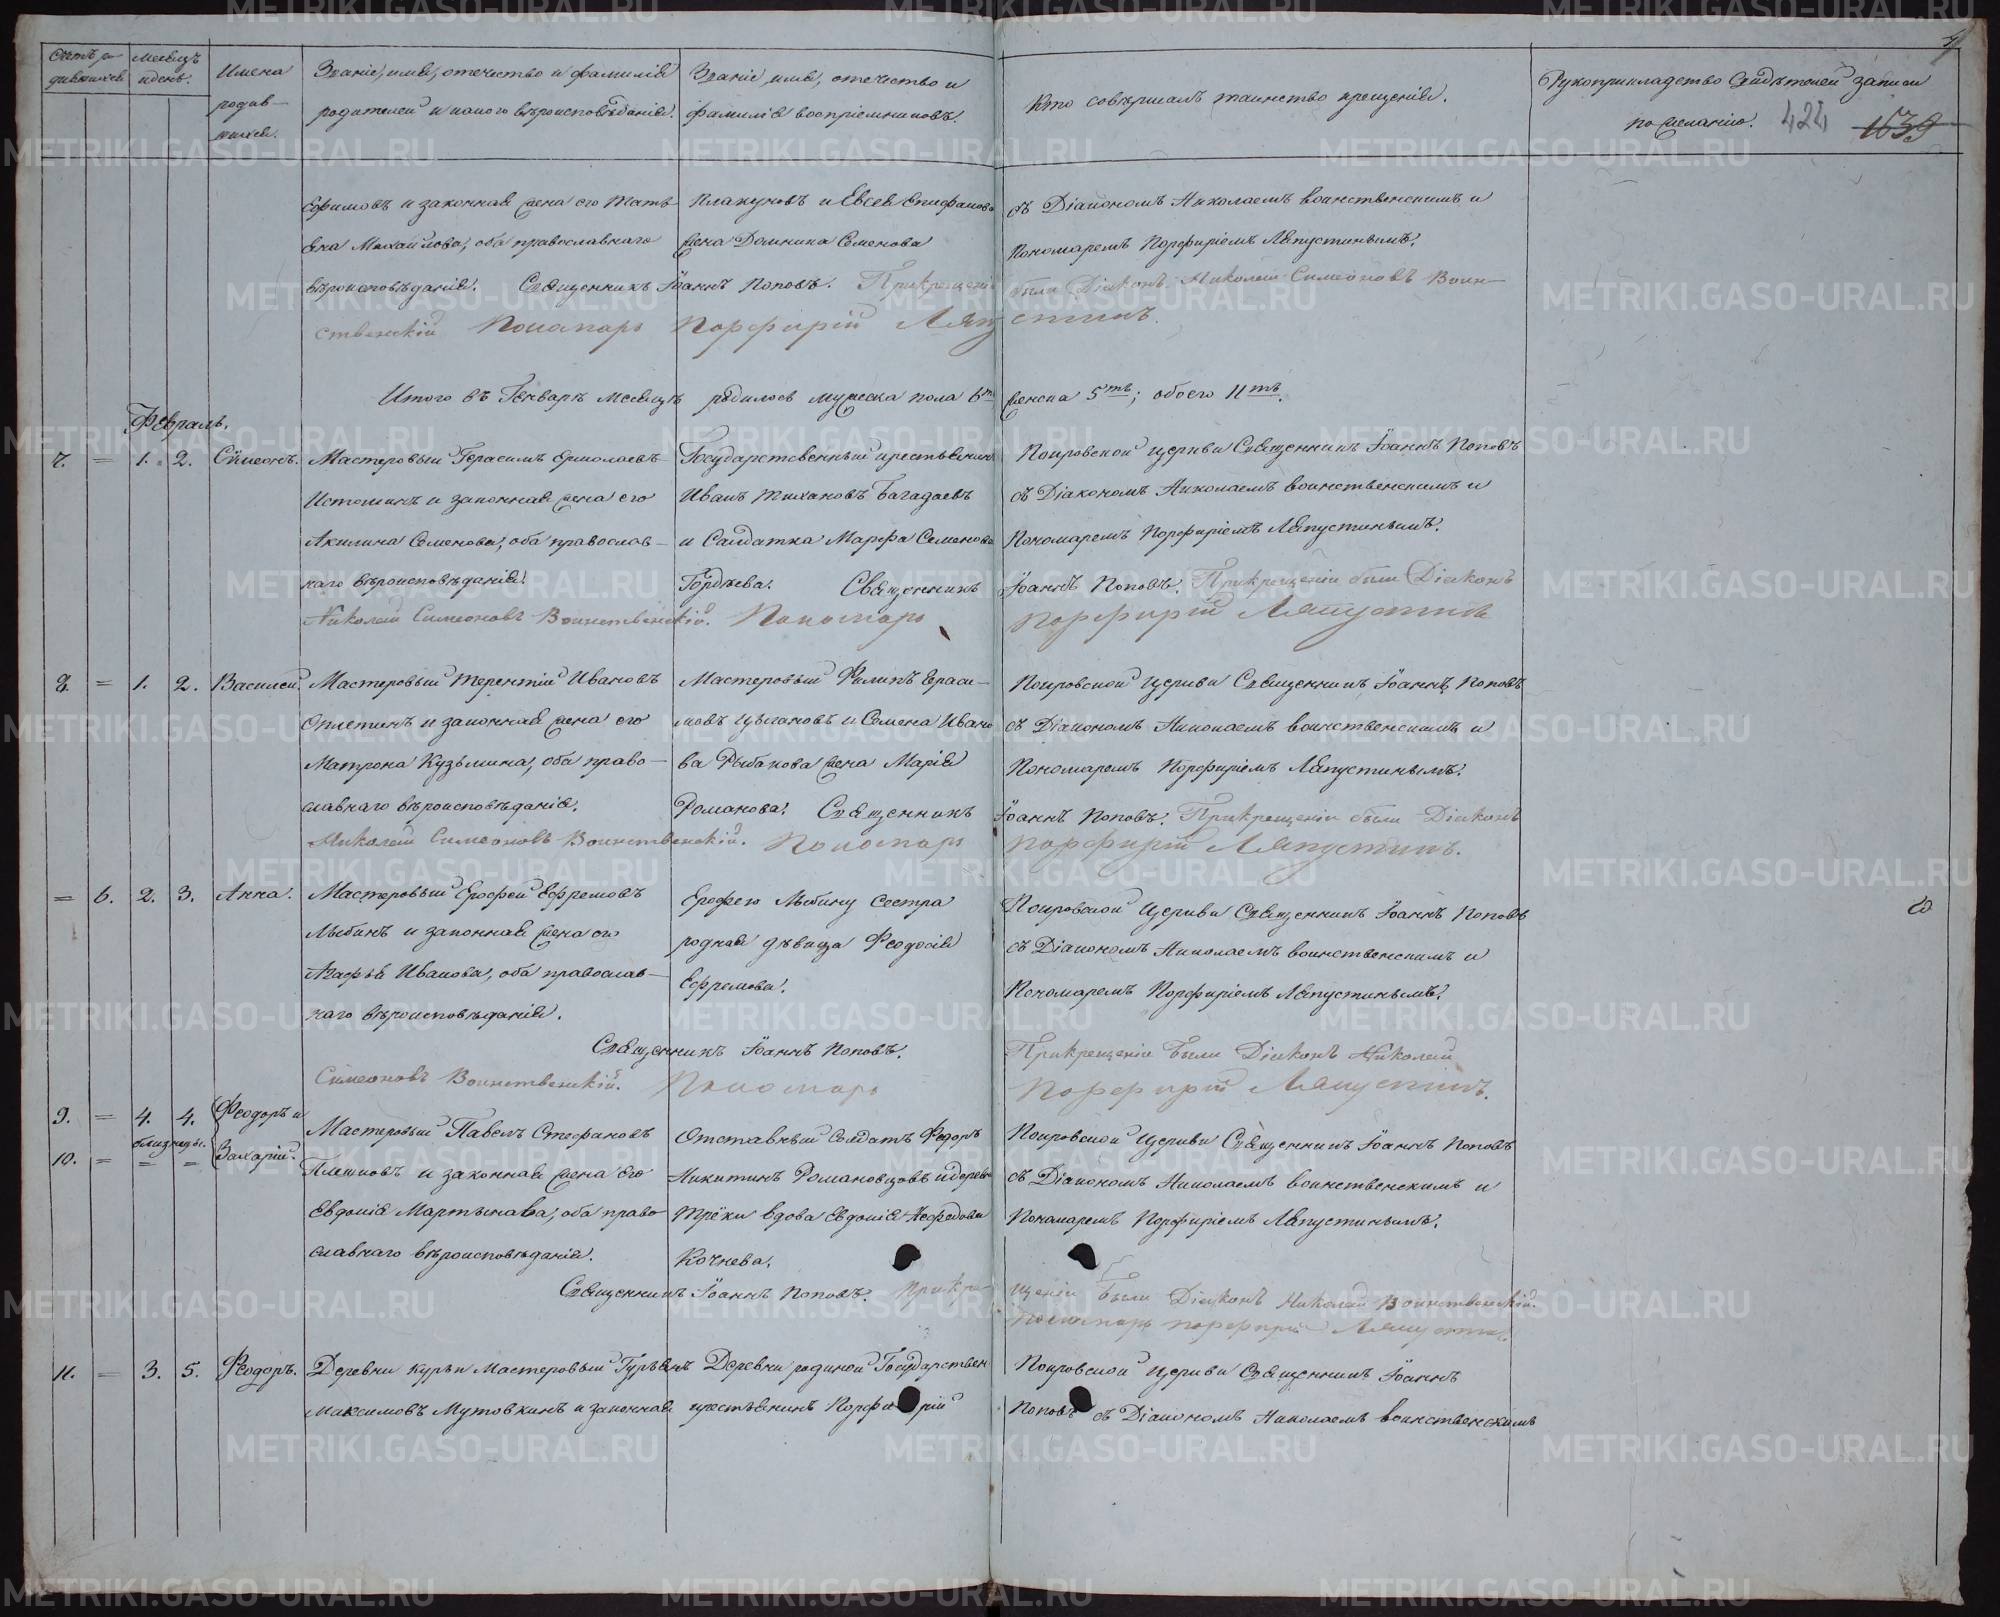 Счетъ ро-
дившихся
Месяцъ
и день.
Имена
родив-
шихся.
Званіе, имя, отечество и фамилія
родителей и какого вѣроисповѣданія.
Званіе, имя, отечество и
фамилія воспріемниковъ.
Кто совѣршалъ таинство крещенія.
Рукоприкладство Свидѣтелей записи
по желанію.
424
1639
Ефимовъ и законная жена его Тать-
яна Михайлова, оба православнаго
вѣроисповѣданія.
Плакуновъ и Евсея Епифанова
жена Домника Семенова
съ Діакономъ Николаемъ Воинственскимъ и
Пономаремъ Порфиріемъ Ляпустинымъ.
Священникъ Іоаннъ Поповъ. Прикрещеніи были Діаконъ Николай Симеоновъ Воин-
ственскій Пономарь Порфирій Ляпустинъ.
Итого въ Генварѣ месяцѣ родилось мужеска пола 6ть женска 5ть; обоего 11ть.
Февраль.
7. = 1. 2. Сѵмеонъ.
Мастеровый Герасимъ Ермолаевъ
Истоминъ и законная жена его
Акилина Семенова, оба православ-
наго вѣроисповѣданія.
Государственный крестьянинъ
Иванъ Тихановъ Багадаевъ
и Салдатка Марфа Семенова
Гордѣева.
Покровской церкви Священникъ Іоаннъ Поповъ
съ Діакономъ Николаемъ Воинственскимъ и
Пономаремъ Порфиріемъ Ляпустинымъ.
Священникъ Іоаннъ Поповъ. Прикрещеніи были Діаконъ
Николай Симеоновъ Воинственскій. Пономарь Порфирій Ляпустинъ
8. = 1. 2. Василей.
Мастеровый Терентій Ивановъ
Оплетинъ и законная жена его
Матрона Кузьмина, оба право-
славнаго вѣроисповѣданія.
Мастеровый Филипъ Гераси-
мовъ Цыгановъ и Семена Ивано-
ва Рыбакова жена Марія
Романова.
Покровской церкви Священникъ Іоаннъ Поповъ
съ Діакономъ Николаемъ Воинственскимъ и
Пономаремъ Порфиріемъ Ляпустинымъ.
Священникъ Іоаннъ Поповъ. Прикрещеніи были Діаконъ
Николай Симеоновъ Воинственскій. Пономарь Порфирій Ляпустинъ.
= 6. 2. 3. Анна.
Мастеровый Ерофей Ефремовъ
Лыбинъ и законная жена его
Агафья Иванова, оба православ-
наго вѣроисповѣданія.
Ерофею Лыбину сестра
родная дѣвица Феодосія
Ефремова.
Покровской церкви Священникъ Іоаннъ Поповъ
съ Діакономъ Николаемъ Воинственскимъ и
Пономаремъ Порфиріемъ Ляпустинымъ.
Священникъ Іоаннъ Поповъ.
Прикрещеніи были Діаконъ Николай
Симеоновъ Воинственскій. Пономарь Порфирій Ляпустинъ.
9. = 4. 4. Феодоръ и
близнецы.
10. = = = Захарій.
Мастеровый Павелъ Стефановъ
Плешковъ и законная жена его
Евдокія Мартынава, оба право-
славнаго вѣроисповѣданія.
Отставный солдатъ Федоръ
Никитинъ Романовцовъ и дерев.
Трёки вдова Евдокія Нефедова
Кочнева.
Покровской церкви Священникъ Іоаннъ Поповъ
съ Діакономъ Николаемъ Воинственскимъ и
Понамаремъ Порфиріемъ Ляпустинымъ.
Священникъ Іоаннъ Поповъ. Прикре-щеніи были Діаконъ Николай Воинственскій.
Пономарь Порфирій Ляпустинъ.
11. = 3. 5. Феодоръ.
Деревни Курьи Мастеровый Гурьянъ
Максимовъ Мутовкинъ и законная
Деревни родиной Государствен.
крестьянинъ Порфирій
Покровской церкви Священникъ Іоаннъ
Поповъ съ Діакономъ Николаемъ Воинственскимъ
METRIKI.GASO-URAL.RU